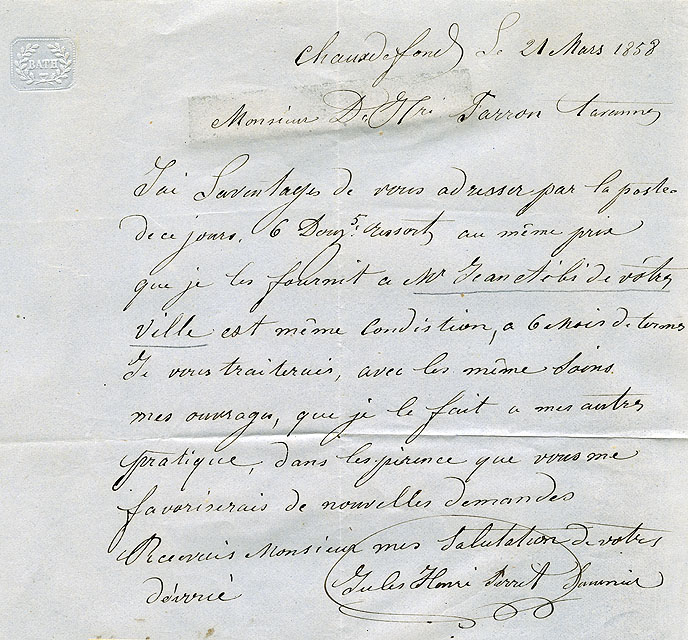 BATH
Chauxdefond Le 21 Mars 1858
Monsieur Di Hri Parron Tavannes
J'ai Laventages de vous adresser par la poste
de ce jours, 6 Douz.s ressorts au même prix
que je les fournit a Mr Jean de vôtres
Ville est même Condistion, a 6 Mois de termes
Je vous traiterais, avec les même Soins
mes ouvrages, que je le fait a mes autres
pratique, dans lespirence que vous me
favoriserais de nouvelles demandes
Recevais Monsieur mes Salutation de votres
dévrié Jules Henri Perret Saunier